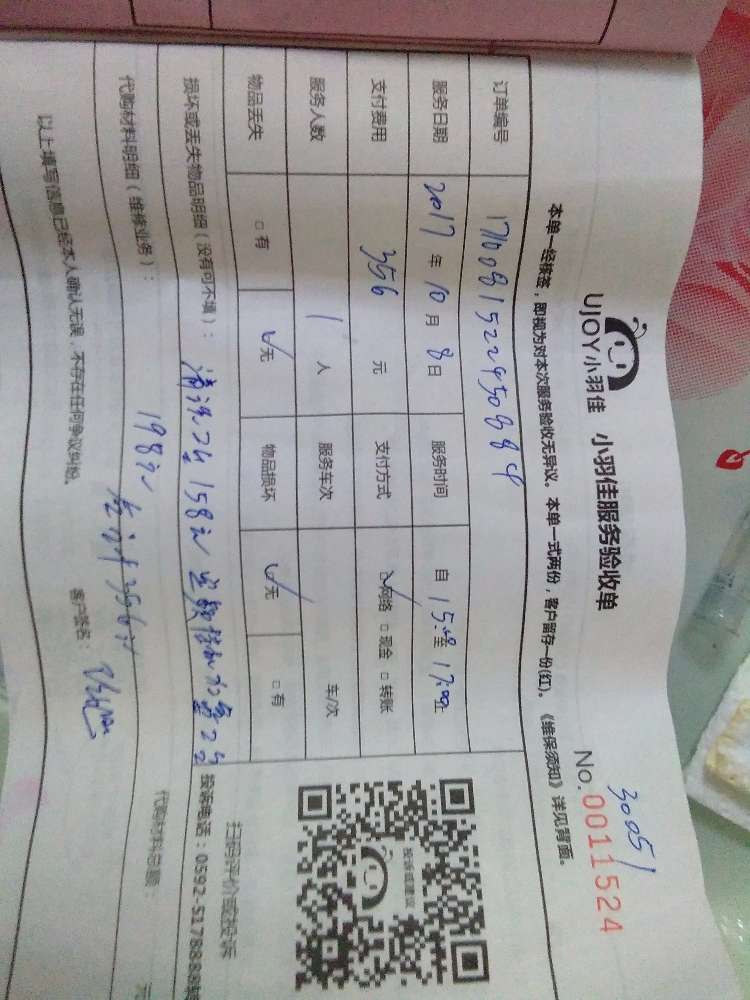 UJOY小羽佳 小羽佳服务验收单
30051
No.0011524
本单一经核签，即视为对本次服务验收无异议。本单一式两份，客户留存一份(红)。《维保须知》详见背面。
订单编号
服务日期 2017年10月8日 服务时间 自15:00至17:00止
支付费用 356元 支付方式 ☑网络 □现金 □转账
服务人数 1人 服务车次 车/次
物品丢失 □有 ☑无 物品损坏 ☑无 □有
损坏或丢失物品明细（没有可不填）： 清洗2台158元
代购材料明细（维修业务）： 198元 合计356元
代购材料总额： 元
以上填写信息已经本人确认无误，不存在任何争议纠纷。
客户签名：
投诉或建议
扫码评价或投诉
投诉电话：0592-5178888转